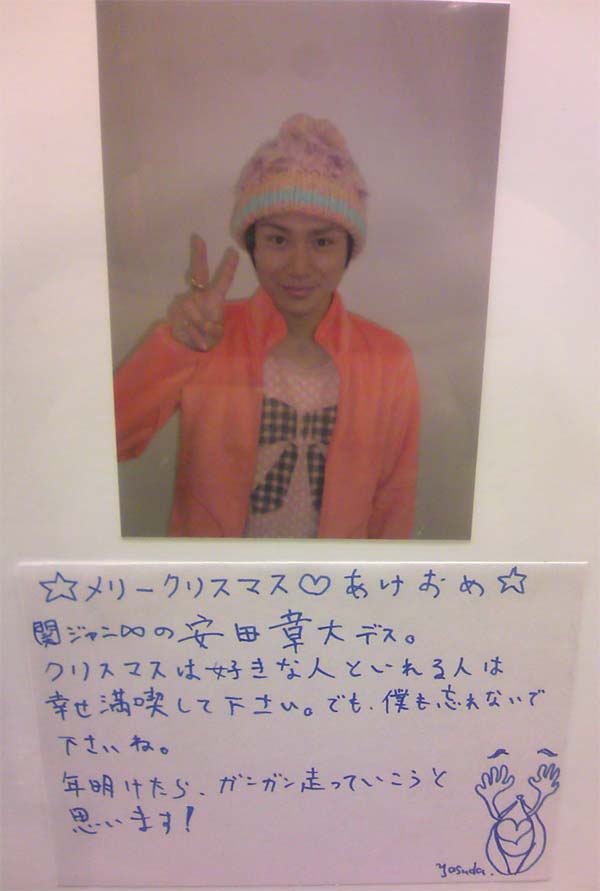 ☆メリークリスマス♡あけおめ☆
関ジャニ∞の安田章大デス。
クリスマスは好きな人といれる人は
幸せ満喫して下さい。でも、僕も忘れないで
下さいね。
年明けたら、ガンガン走っていこうと
思います!
yasuda.